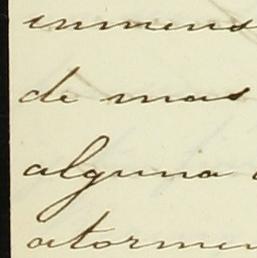 inmens
de mas
alguna
atormen